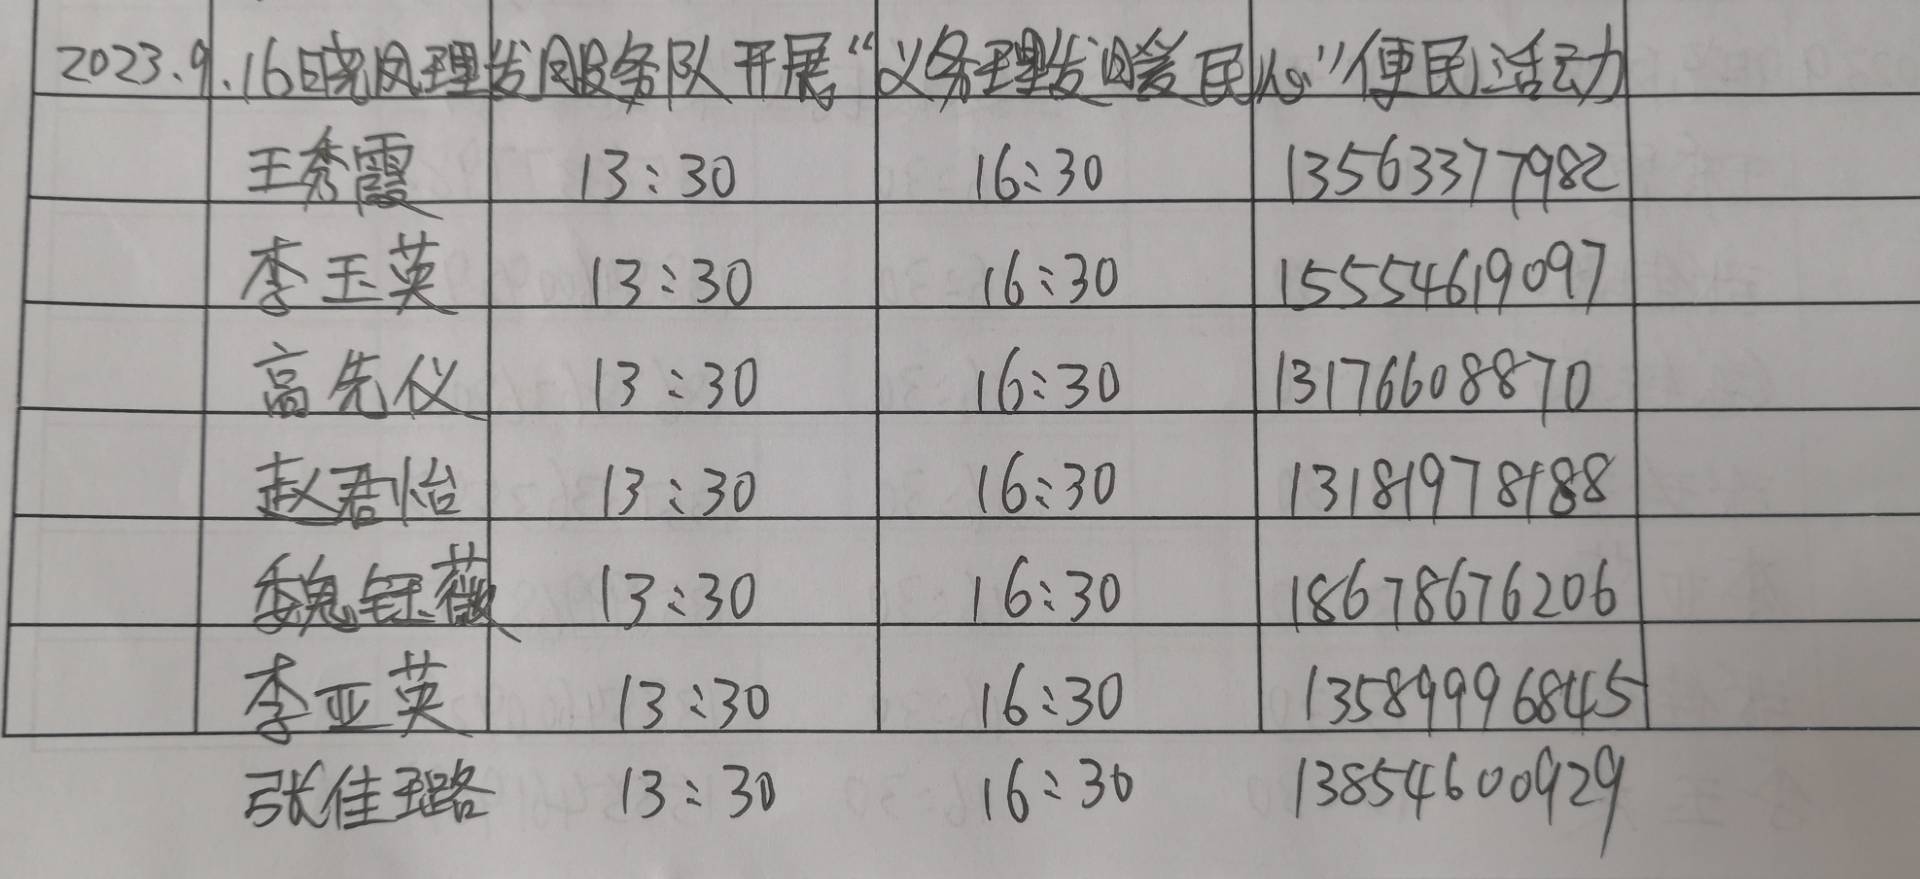 2023.9.16晓风理发服务队开展“义务理发暖民心”便民活动
王秀霞 13:30 16:30 13563377982
李玉英 13:30 16:30 15554619097
高先仪 13:30 16:30 13176608870
赵君怡 13:30 16:30 13181978188
魏钰薇 13:30 16:30 18678676206
李亚英 13:30 16:30 13589996845
张佳璐 13:30 16:30 13854600929